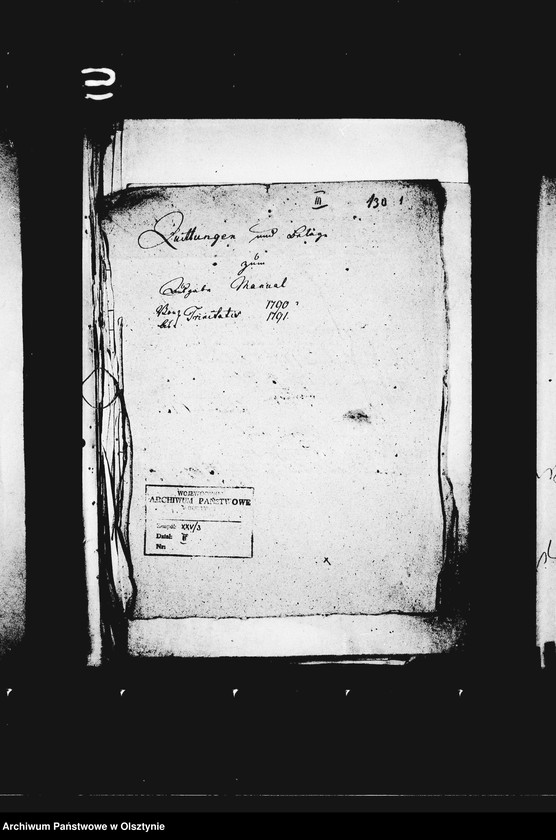 III 130 1
Quittungen und Beläge
zum
Ausgabe Manual
Von Trinitatis 1790
bis 1791.
WOJEWÓDZKIE
ARCHIWUM PAŃSTWOWE
Zespół: XXV/3
Dział: III
Nr:
x
Archiwum Państwowe w Olsztynie